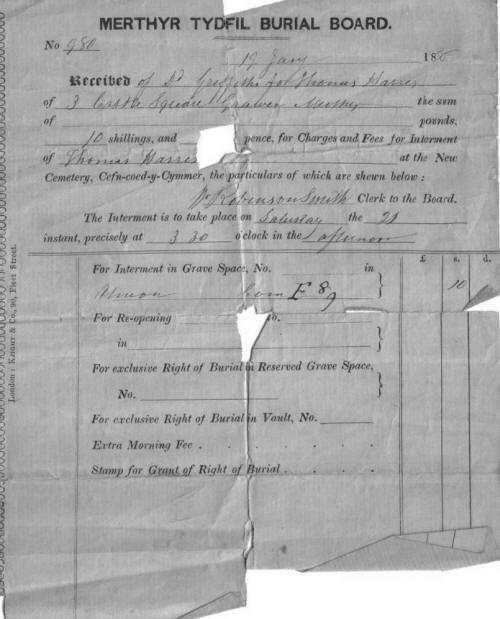 MERTHYR TYDFIL BURIAL BOARD.
No 980
19 Jany 188
Received of Dd Griffiths for Thomas Harris
of 3 Castle Square Merthyr the sum
of pounds,
10 shillings, and pence, for Charges and Fees for Interment
of Thomas Harris at the New
Cemetery, Cefn-coed-y-Cymmer, the particulars of which are shewn below:
Wm Robinson Smith Clerk to the Board.
The Interment is to take place on Saturday the 21
instant, precisely at 3 30 o'clock in the afternoon
£ s. d.
For Interment in Grave Space, No. in
10
E 89
For Re-opening No.
in
For exclusive Right of Burial in Reserved Grave Space,
No.
For exclusive Right of Burial in Vault, No.
Extra Morning Fee . . . . . .
Stamp for Grant of Right of Burial . . . .
London: Knauer & Co., 90, Fleet Street.